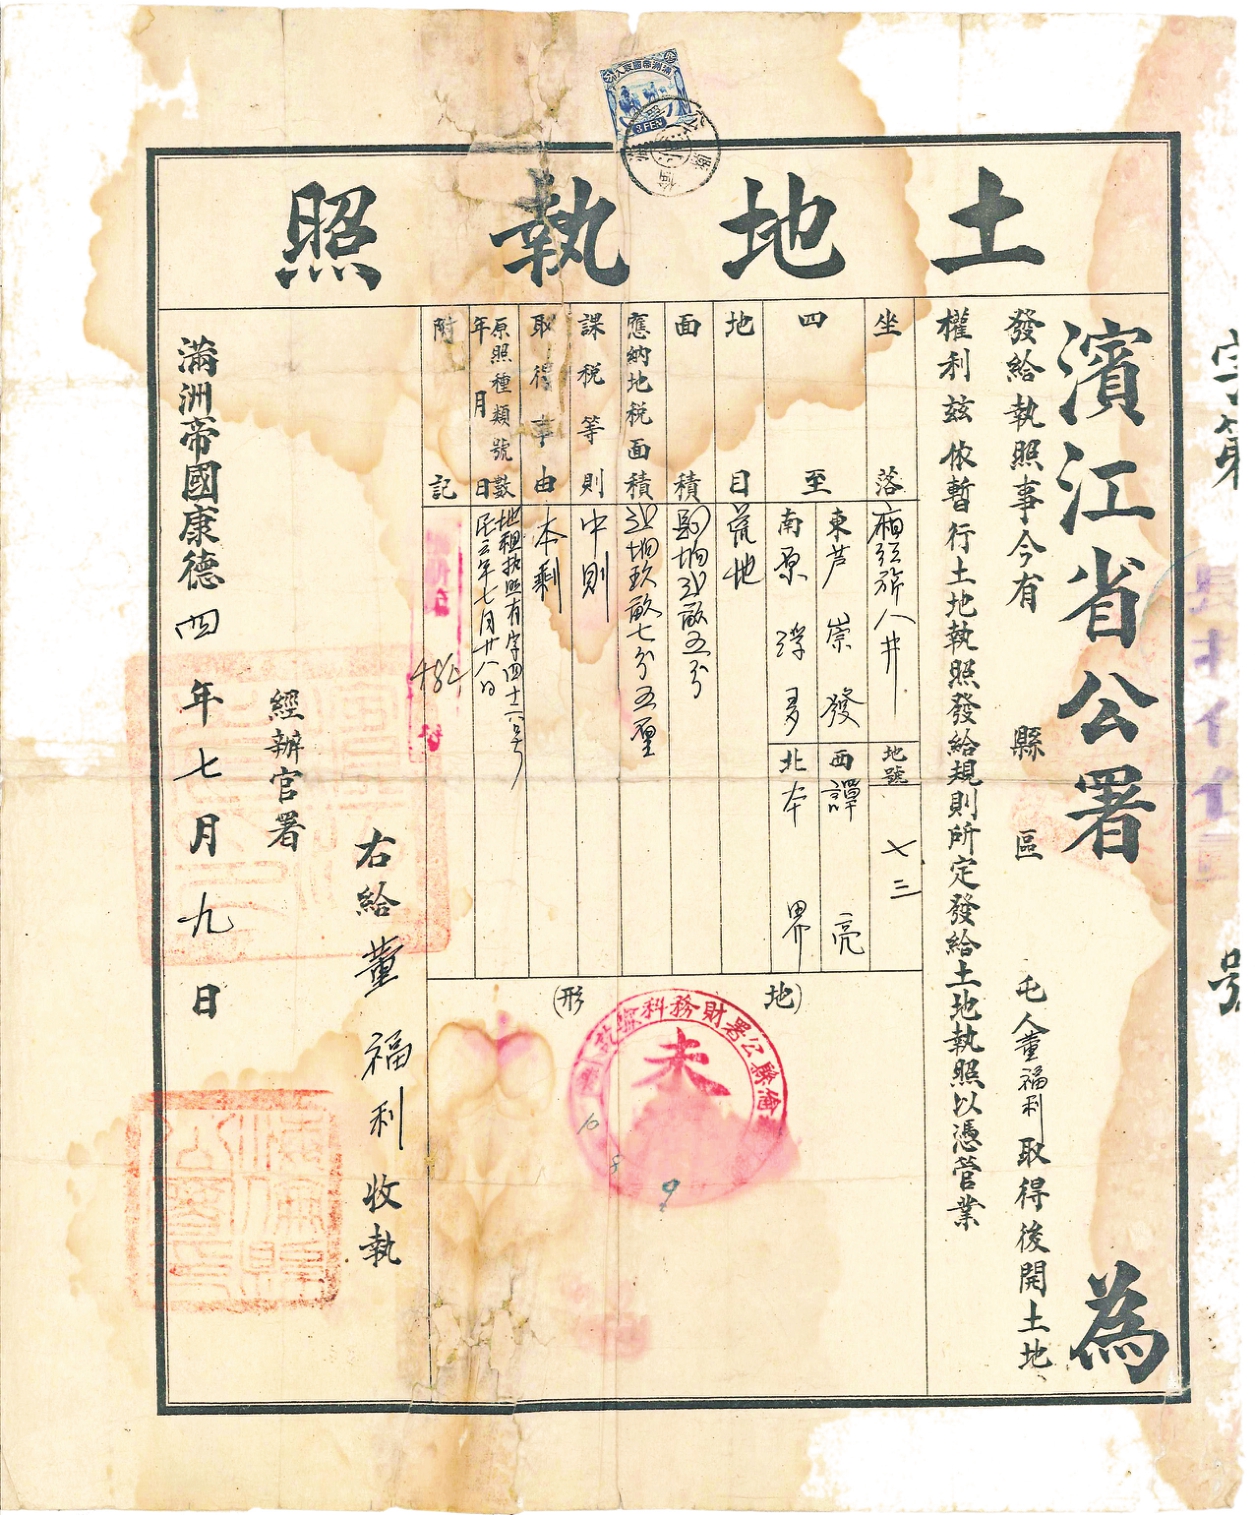 土地執照
字第
號
濱江省公署為
發給執照事今有 縣 區 屯人董福利取得後開土地
權利茲依暫行土地執照發給規則所定發給土地執照以憑營業
坐落
人井
地號
七三
四至
東芦崇發
西譚亮
南原
北本界
地目
荒地
面積
坰 畝五分
應納地稅面積
坰玖畝七分五厘
課稅等則
中則
取得事由
本剩
原照種類號數
年月日
地租执照有字四十六号
民三年七月廿八日
附記
(地形)
縣公署財務科
未
右給董福利收執
經辦官署
滿洲帝國康德四年七月九日
3 FEN